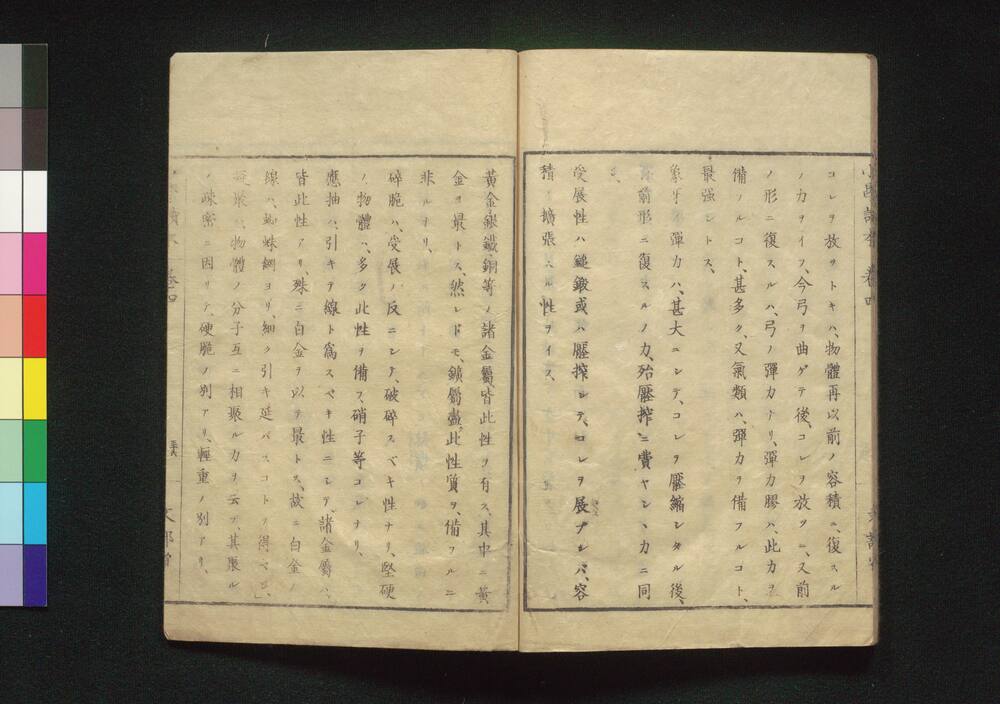 コレヲ放ツトキハ、物體再以前ノ容積ニ、復スル
ノ力ヲイフ、今弓ヲ曲ゲテ後、コレヲ放ツニ、又前
ノ形ニ復スルハ、弓ノ彈力ナリ、彈力膠ハ、此力ヲ
備フルコト、甚多ク、又氣類ハ、彈力ヲ備フルコト、
最强シトス、
象牙ノ彈力ハ、甚大ニシテ、コレヲ壓縮シタル後、
前形ニ復スルノ力、殆壓搾ニ費ヤシヽカニ同
シ、
受展性ハ鎚鍛或ハ壓搾シテ、コレヲ展ブレバ、容
積ノ擴張スル性ヲイフ、
黃金銀鐵、銅等ノ諸金屬、皆此性ヲ有ス、其中ニ黃
金ヲ最トス、然レドモ、鑛屬盡ク此性質ヲ、備フルニ
非ルナリ、
碎脆ハ、受展ノ反ニシテ、破碎スベキ性ナリ、堅硬
ノ物體ハ、多ク此性ヲ備フ、硝子等コレナリ、
應抽ハ、引キテ線ト爲スベキ性ニシテ、諸金屬ハ、
皆此性アリ、殊ニ白金ヲ以テ最トス、故ニ白金ノ
線ハ、蜘蛛網ヨリ、細ク引キ延バスコトヲ得ベシ、
凝聚ハ、物體ノ分子互ニ相聚ルカヲ云フ、其聚ル
ノ疎密ニ因リテ、硬脆ノ別アリ、輕重ノ別アリ、
卷四